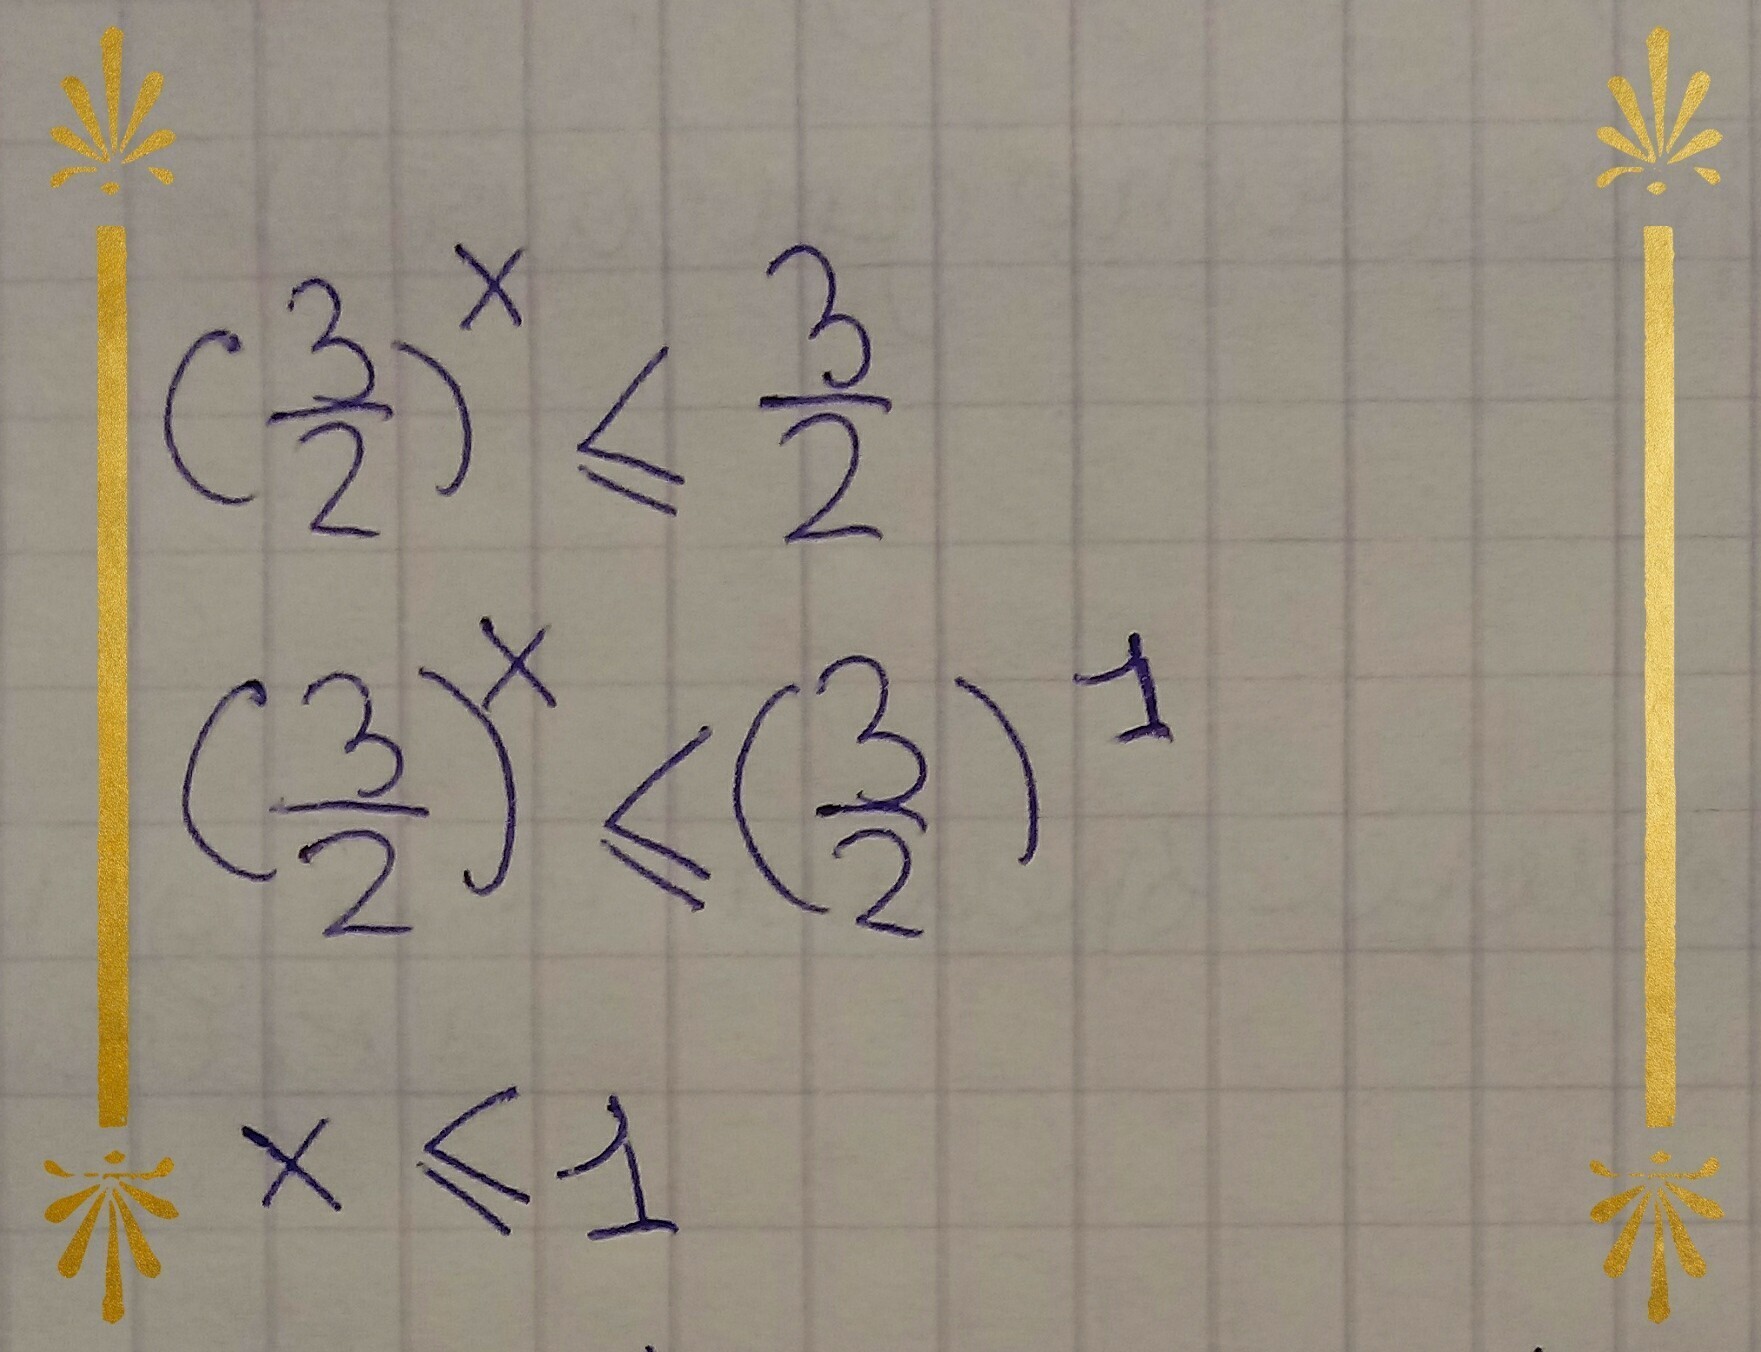 (3/2)^x ≤ 3/2
(3/2)^x ≤ (3/2)^1
x ≤ 1